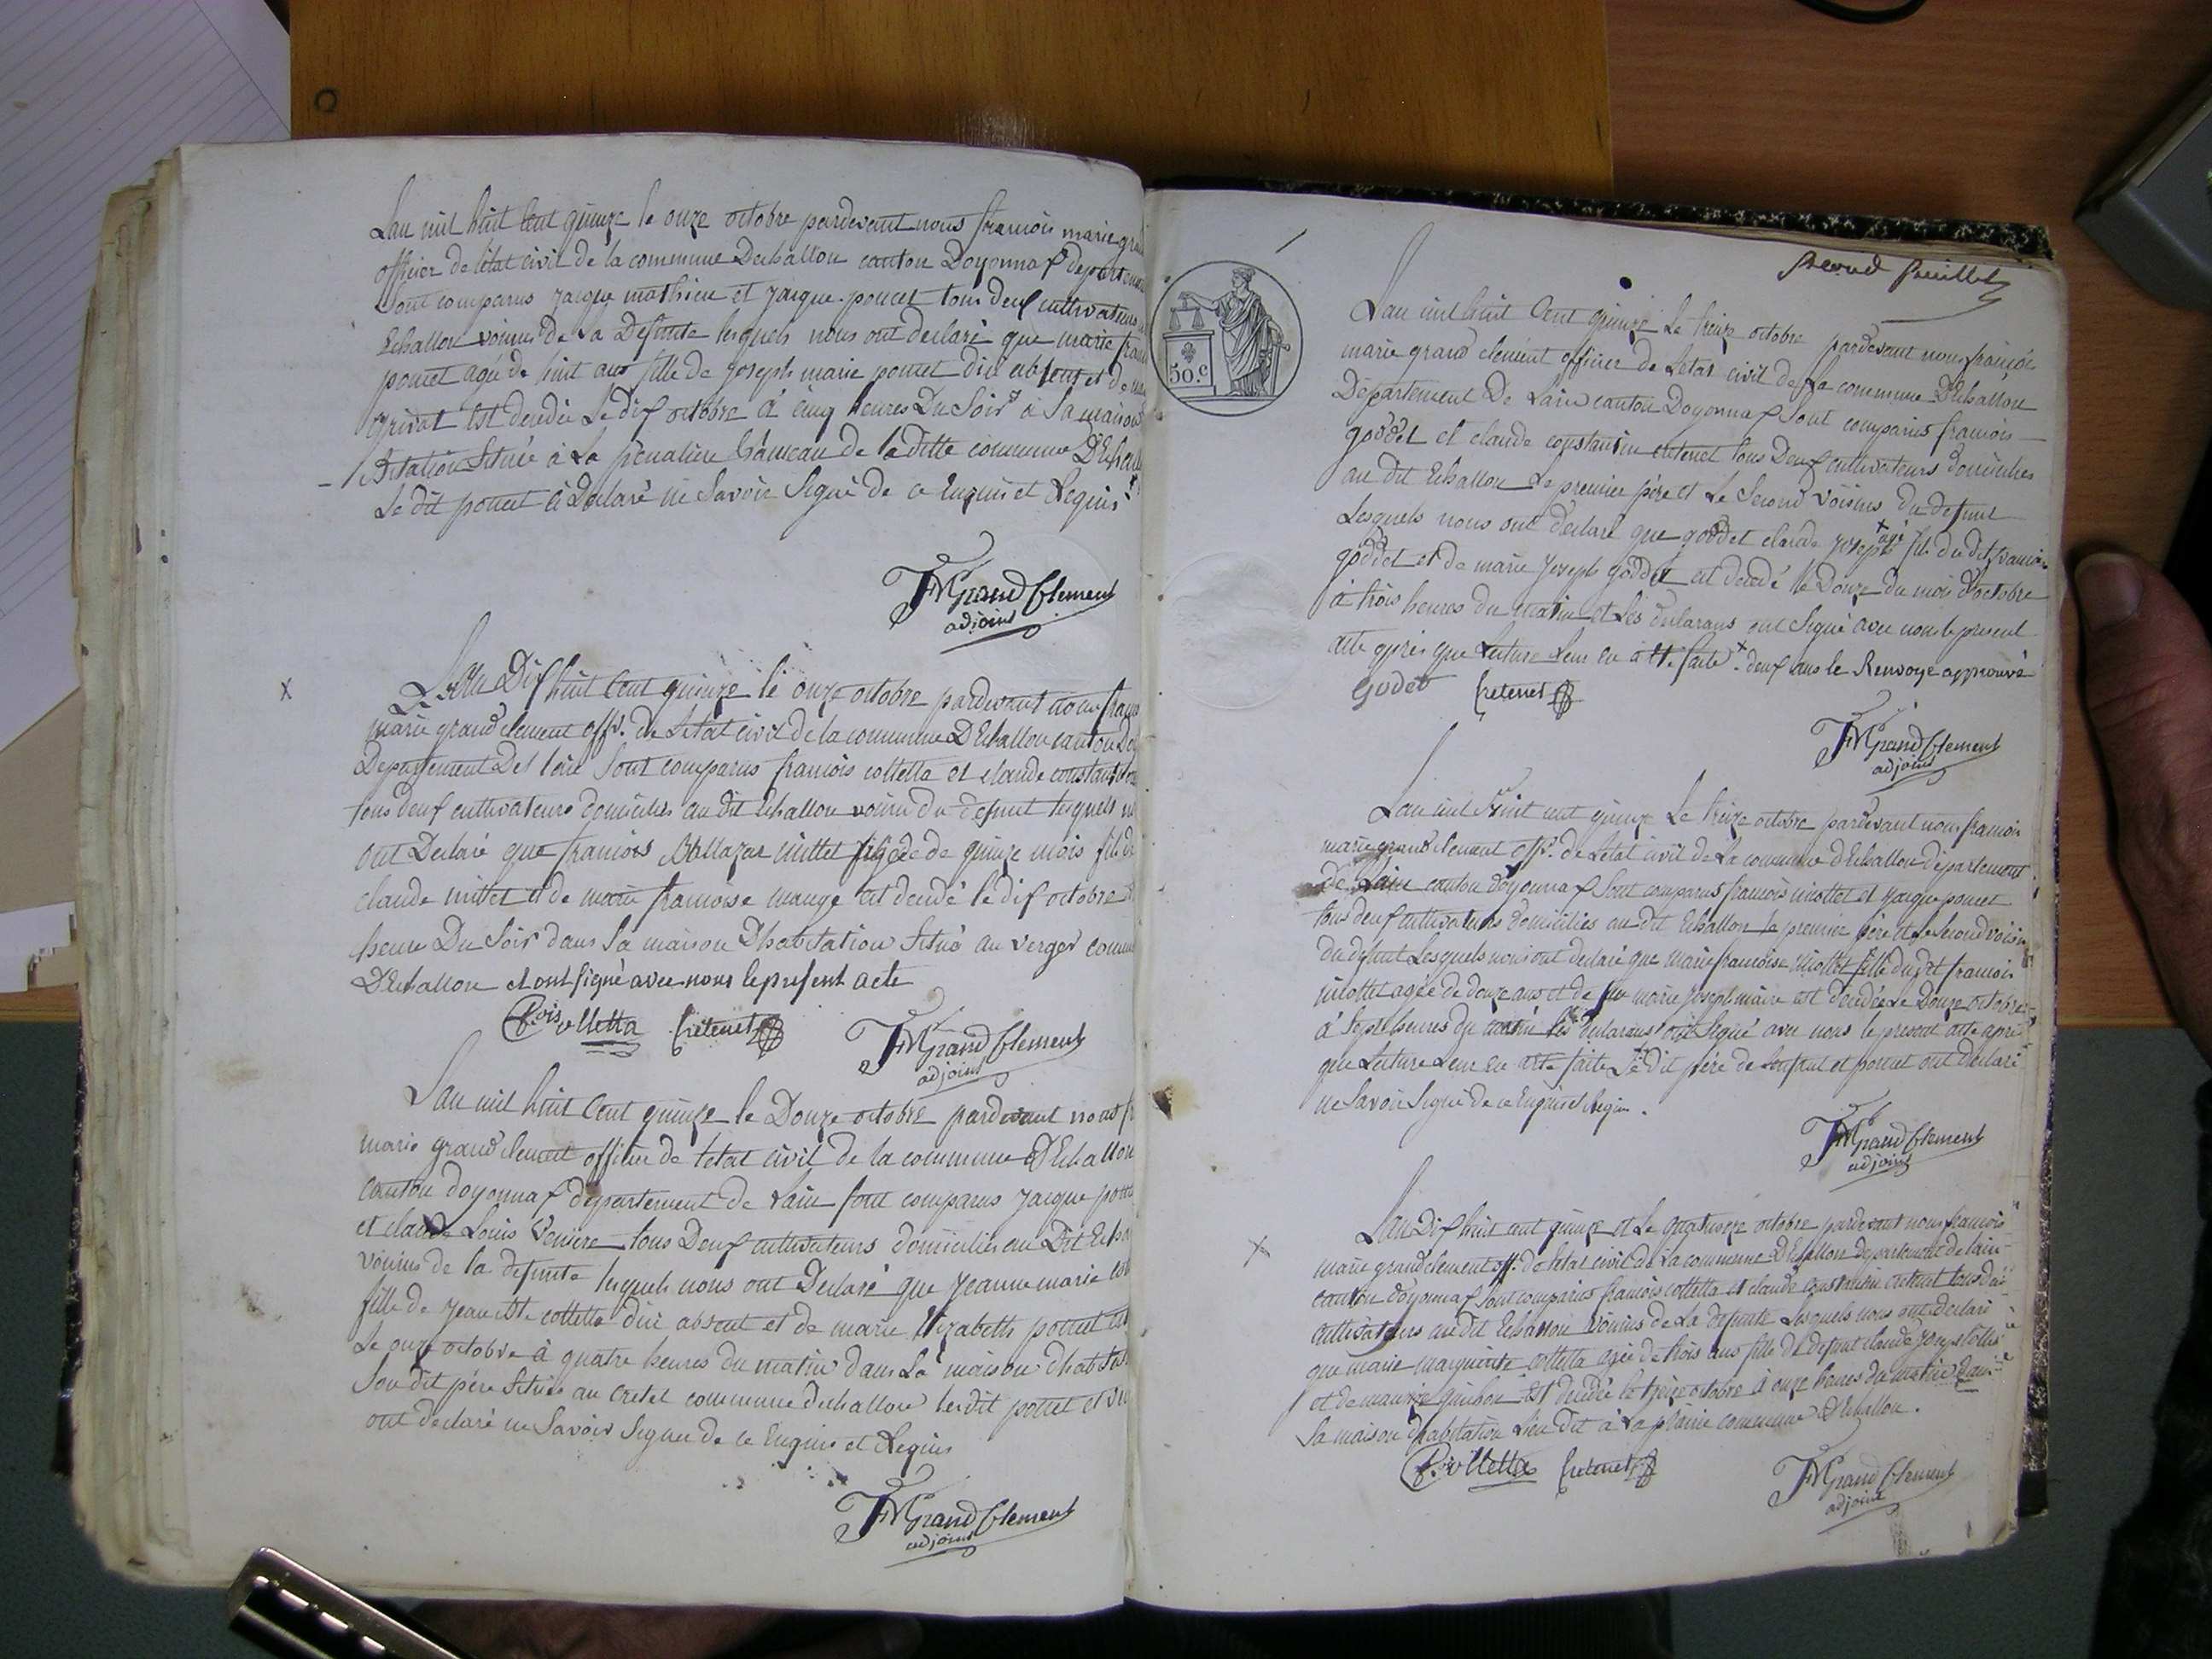 Lan mil huit Cent quinze le onze octobre pardevant nous francois marie
officier de létat civil de la commune Dechallon canton Doyonnax
Sont comparus jacque mathieu et jacque poncet tous deux cultivateurs
Echallon voisins de la Defunte lesquels nous ont declaré que marie
poncet agée de huit ans fille de joseph marie poncet dici absent et de
grivat est decedée Le dix octobre à cinq heures Du Soir à Sa maison
Située à La hameau de la ditte commune
Le dit poncet à Déclaré ne Savoir Signé de ce Enquis et Requis
FM Grand Clement
adjoint
Lan Dix huit Cent quinze le onze octobre pardevant nous
marie grand clement offr. de Létat civil de la commune DEchallon canton
Departement De Sont comparus francois colletta et claude
tous deux cultivateurs domiciliés au dit Echallon voisin du defunt lesquels
ont Declaré que francois millet de quinze mois fils
claude millet et de marie francoise est decedé le dix octobre
heure Du Soir dans Sa maison Dhabitation Situé au verger
DEchallon et ont signé avec nous le present acte
Colletta Cretenet
FM Grand Clement
adjoint
Lan mil huit Cent quinze le Douze octobre pardevant nous
marie grand clement officier de létat civil de la commune DEchallon
Canton doyonnax departement de Lain sont comparus jacque
et claude Louis tous Deux cultivateurs domiciliés au Dit
voisins de la defunte lesquels nous ont Declaré que jeanne marie
fille de jean Bte colletta dici absent et de marie Elizabeth poncet
Le onze octobre à quatre heures du matin dans La maison
Son dit père Située au Cretet commune dechallon lesdit poncet et
ont declaré ne Savoir Signer de ce Enquis et Requis
FM Grand Clement
adjoint
second feuillet
50.c
Lan mil huit Cent quinze Le treize octobre pardevant nous francois
marie grand clement officier de Létat civil de La commune DEchallon
Département De Lain canton Doyonnax Sont comparus francois
goddet et claude constantin cretenet tous Deux cultivateurs domiciliés
au dit Echallon Le premier père et Le Second voisins du defunt
Lesquels nous ont déclaré que goddet claude joseph + agé fils du dit francois
goddet et de marie joseph goddet est decedé le Douze du mois d'octobre
à trois heures du matin et Les declarans ont Signé avec nous le present
acte après que Lecture Leur en a été faite + deux ans le Renvoye approuvé
Godet Cretenet
FM Grand Clement
adjoint
Lan mil huit cent quinze Le treize octobre pardevant nous francois
marie grand clement offr. de Létat civil de La commune dEchallon département
De Lain canton doyonnax Sont comparus francois et jacque poncet
tous deux cultivateurs domiciliés au dit Echallon le premier père et le second voisin
du defunt Lesquels nous ont declaré que marie francoise fille du dit francois
agée de douze ans et de marie joseph est décédée Le Douze octobre
à Sept heures du matin Les declarans ont Signé avec nous le present acte après
que Lecture Leur en a été faite Le dit père de et poncet ont declaré
ne Savoir Signé de ce Enquis et Requis.
FM Grand Clement
adjoint
Lan Dix huit cent quinze et Le quatorze octobre pardevant nous francois
marie grand clement off. de létat civil de La commune DEchallon departement de lain
canton doyonnax Sont comparus francois colletta et claude constantin cretenet tous deux
cultivateurs audit Echallon voisins de La defunte Lesquels nous ont declaré
que marie colletta agée de trois ans fille de defunt claude joseph
et de est décédée le treize octobre à onze heures du matin dans
Sa maison dhabitation Lieu Dit à La plaine commune dEchallon.
Colletta Cretenet
FM Grand Clement
adjoint